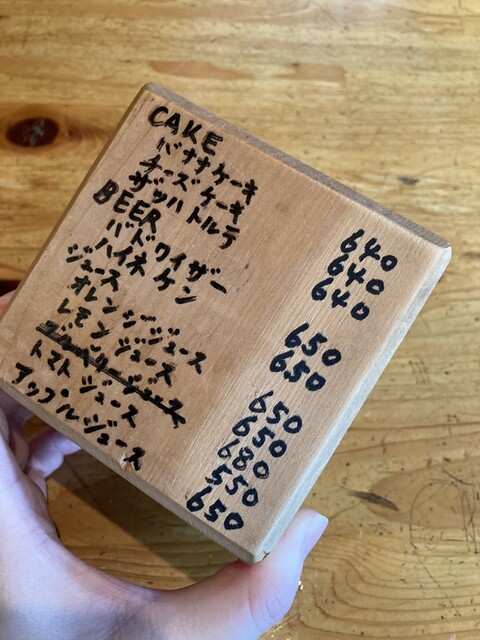 CAKE
バナナケーキ 640
チーズケーキ 640
ザッハトルテ 640
BEER
バドワイザー 650
ハイネケン 650
ジュース
オレンジジュース 650
レモンジュース 650
680
トマトジュース 550
アップルジュース 650